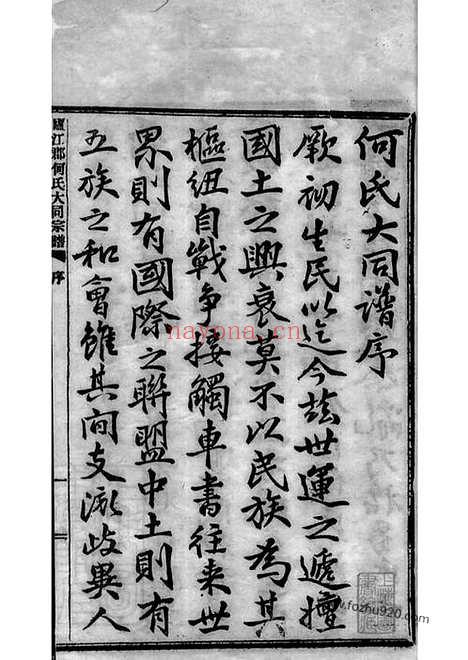 何氏大同譜序
厥初生民以迄今茲世運之遞擅
國土之興衰莫不以民族為其
樞紐自戰争接觸車書往来世
界則有國際之聯盟中土則有
五族之和會雖其間支派歧異人
廬江郡何氏大同宗譜
序
一
nayona.cn
www.fozhu920.com